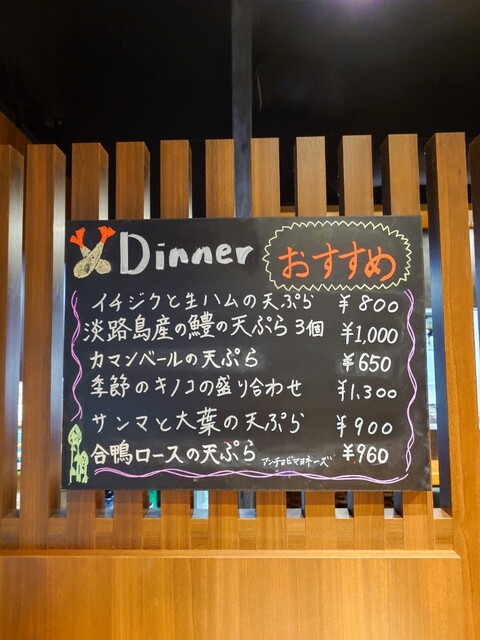 Dinner おすすめ
イチジクと生ハムの天ぷら ¥800
淡路島産の鱧の天ぷら 3個 ¥1,000
カマンベールの天ぷら ¥650
季節のキノコの盛り合わせ ¥1,300
サンマと大葉の天ぷら ¥900
合鴨ロースの天ぷら アンチョビマヨネーズ ¥960